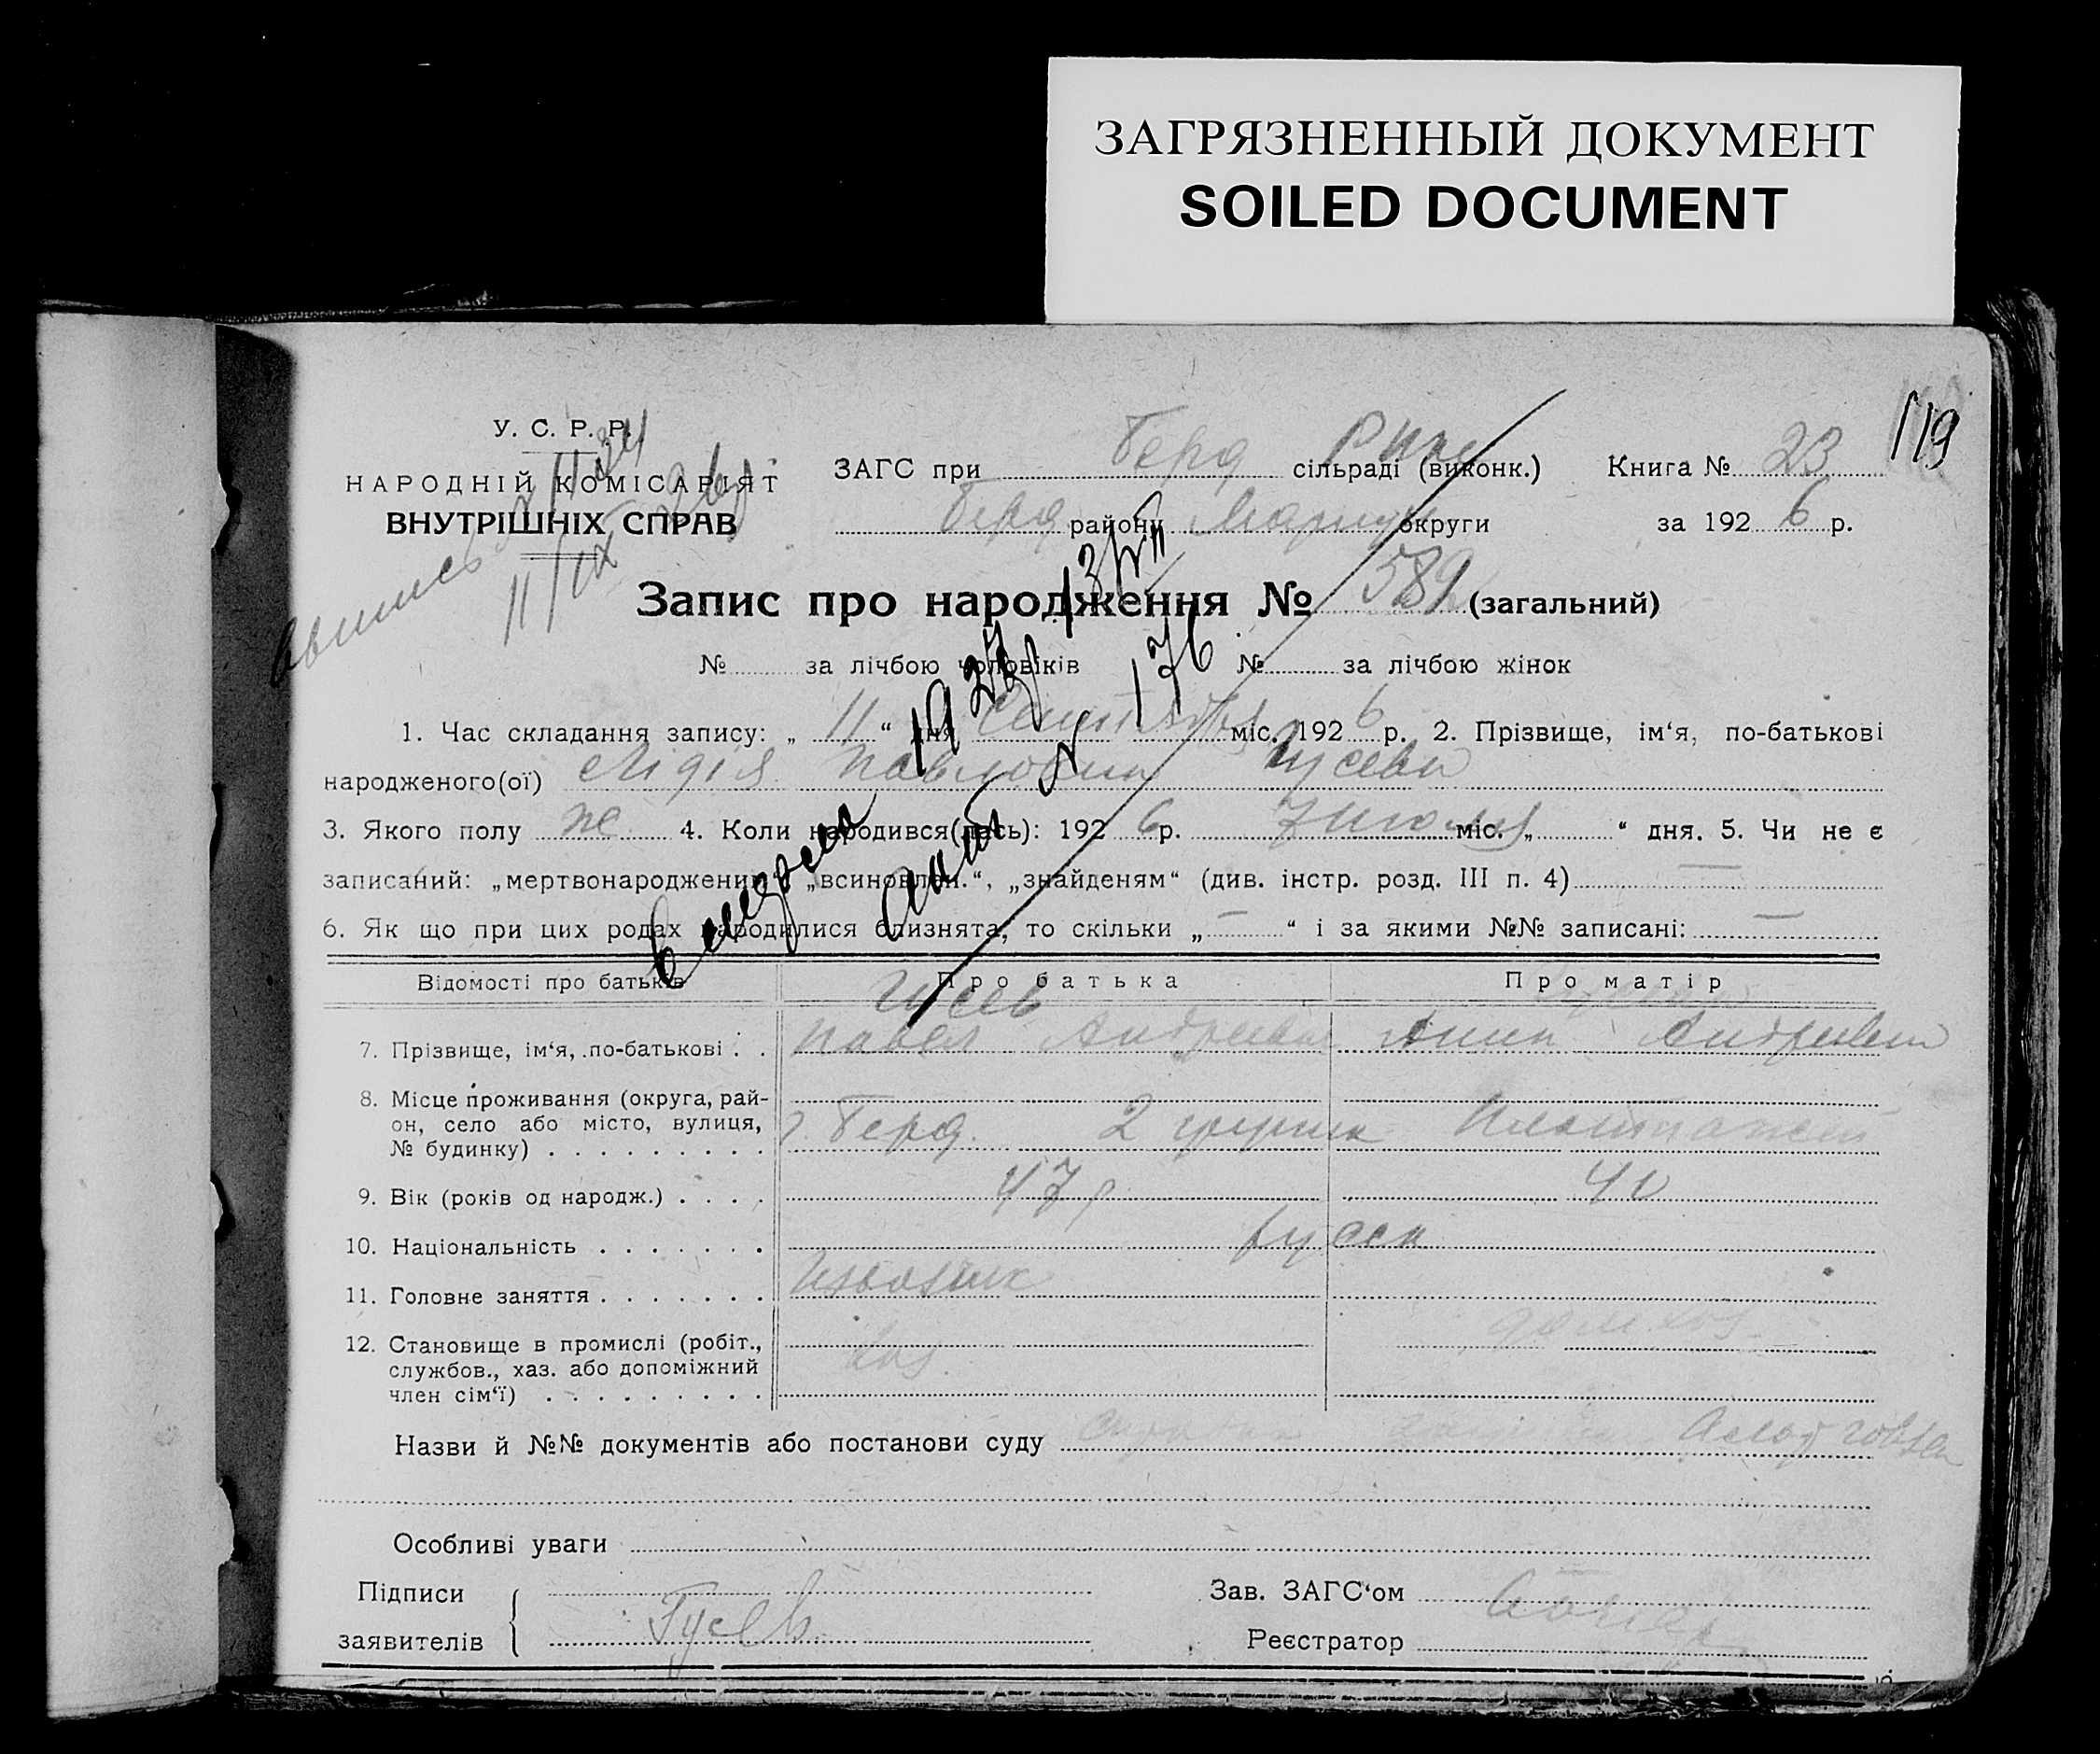 ЗАГРЯЗНЕННЫЙ ДОКУМЕНТ
SOILED DOCUMENT
119
У. С. Р. Р.
НАРОДНІЙ КОМІСАРІЯТ
ВНУТРІШНІХ СПРАВ
ЗАГС при Берд сільраді (виконк.) Книга № 23
Берд району округи за 1926 р.
11/IX
Запис про народження № 589 (загальний)
№ за лічбою чоловіків № за лічбою жінок
176
1. Час складання запису: „11“ дня міс. 1926 р. 2. Прізвище, ім‘я, по-батькові
народженого(ої) Лідія Павловна Гусева
3. Якого полу ж 4. Коли народився(лась): 1926 р. 7 июля міс. „ “ дня. 5. Чи не є
записаний: „мертвонароджений“, „всиновлен.“, „знайденям“ (див. інстр. розд. III п. 4) —
6. Як що при цих родах народилися близнята, то скільки „—“ і за якими №№ записані: —
Відомості про батьків Про батька Про матір
Гусев
7. Прізвище, ім‘я, по-батькові . . Павел Андреевич Анна Андреевна
8. Місце проживання (округа, рай-
он, село або місто, вулиця,
№ будинку) . . . . . . . . . г. Берд. 2
9. Вік (років од народж.) . . . . 47 р 40
10. Національність . . . . . . . русск
11. Головне заняття . . . . . . . Извозчик
12. Становище в промислі (робіт.,
службов., хаз. або допоміжний
член сім‘ї) . . . . . . . . . хоз.
Назви й №№ документів або постанови суду
Особливі уваги
Підписи Зав. ЗАГС‘ом
заявителів Гусев Реєстратор